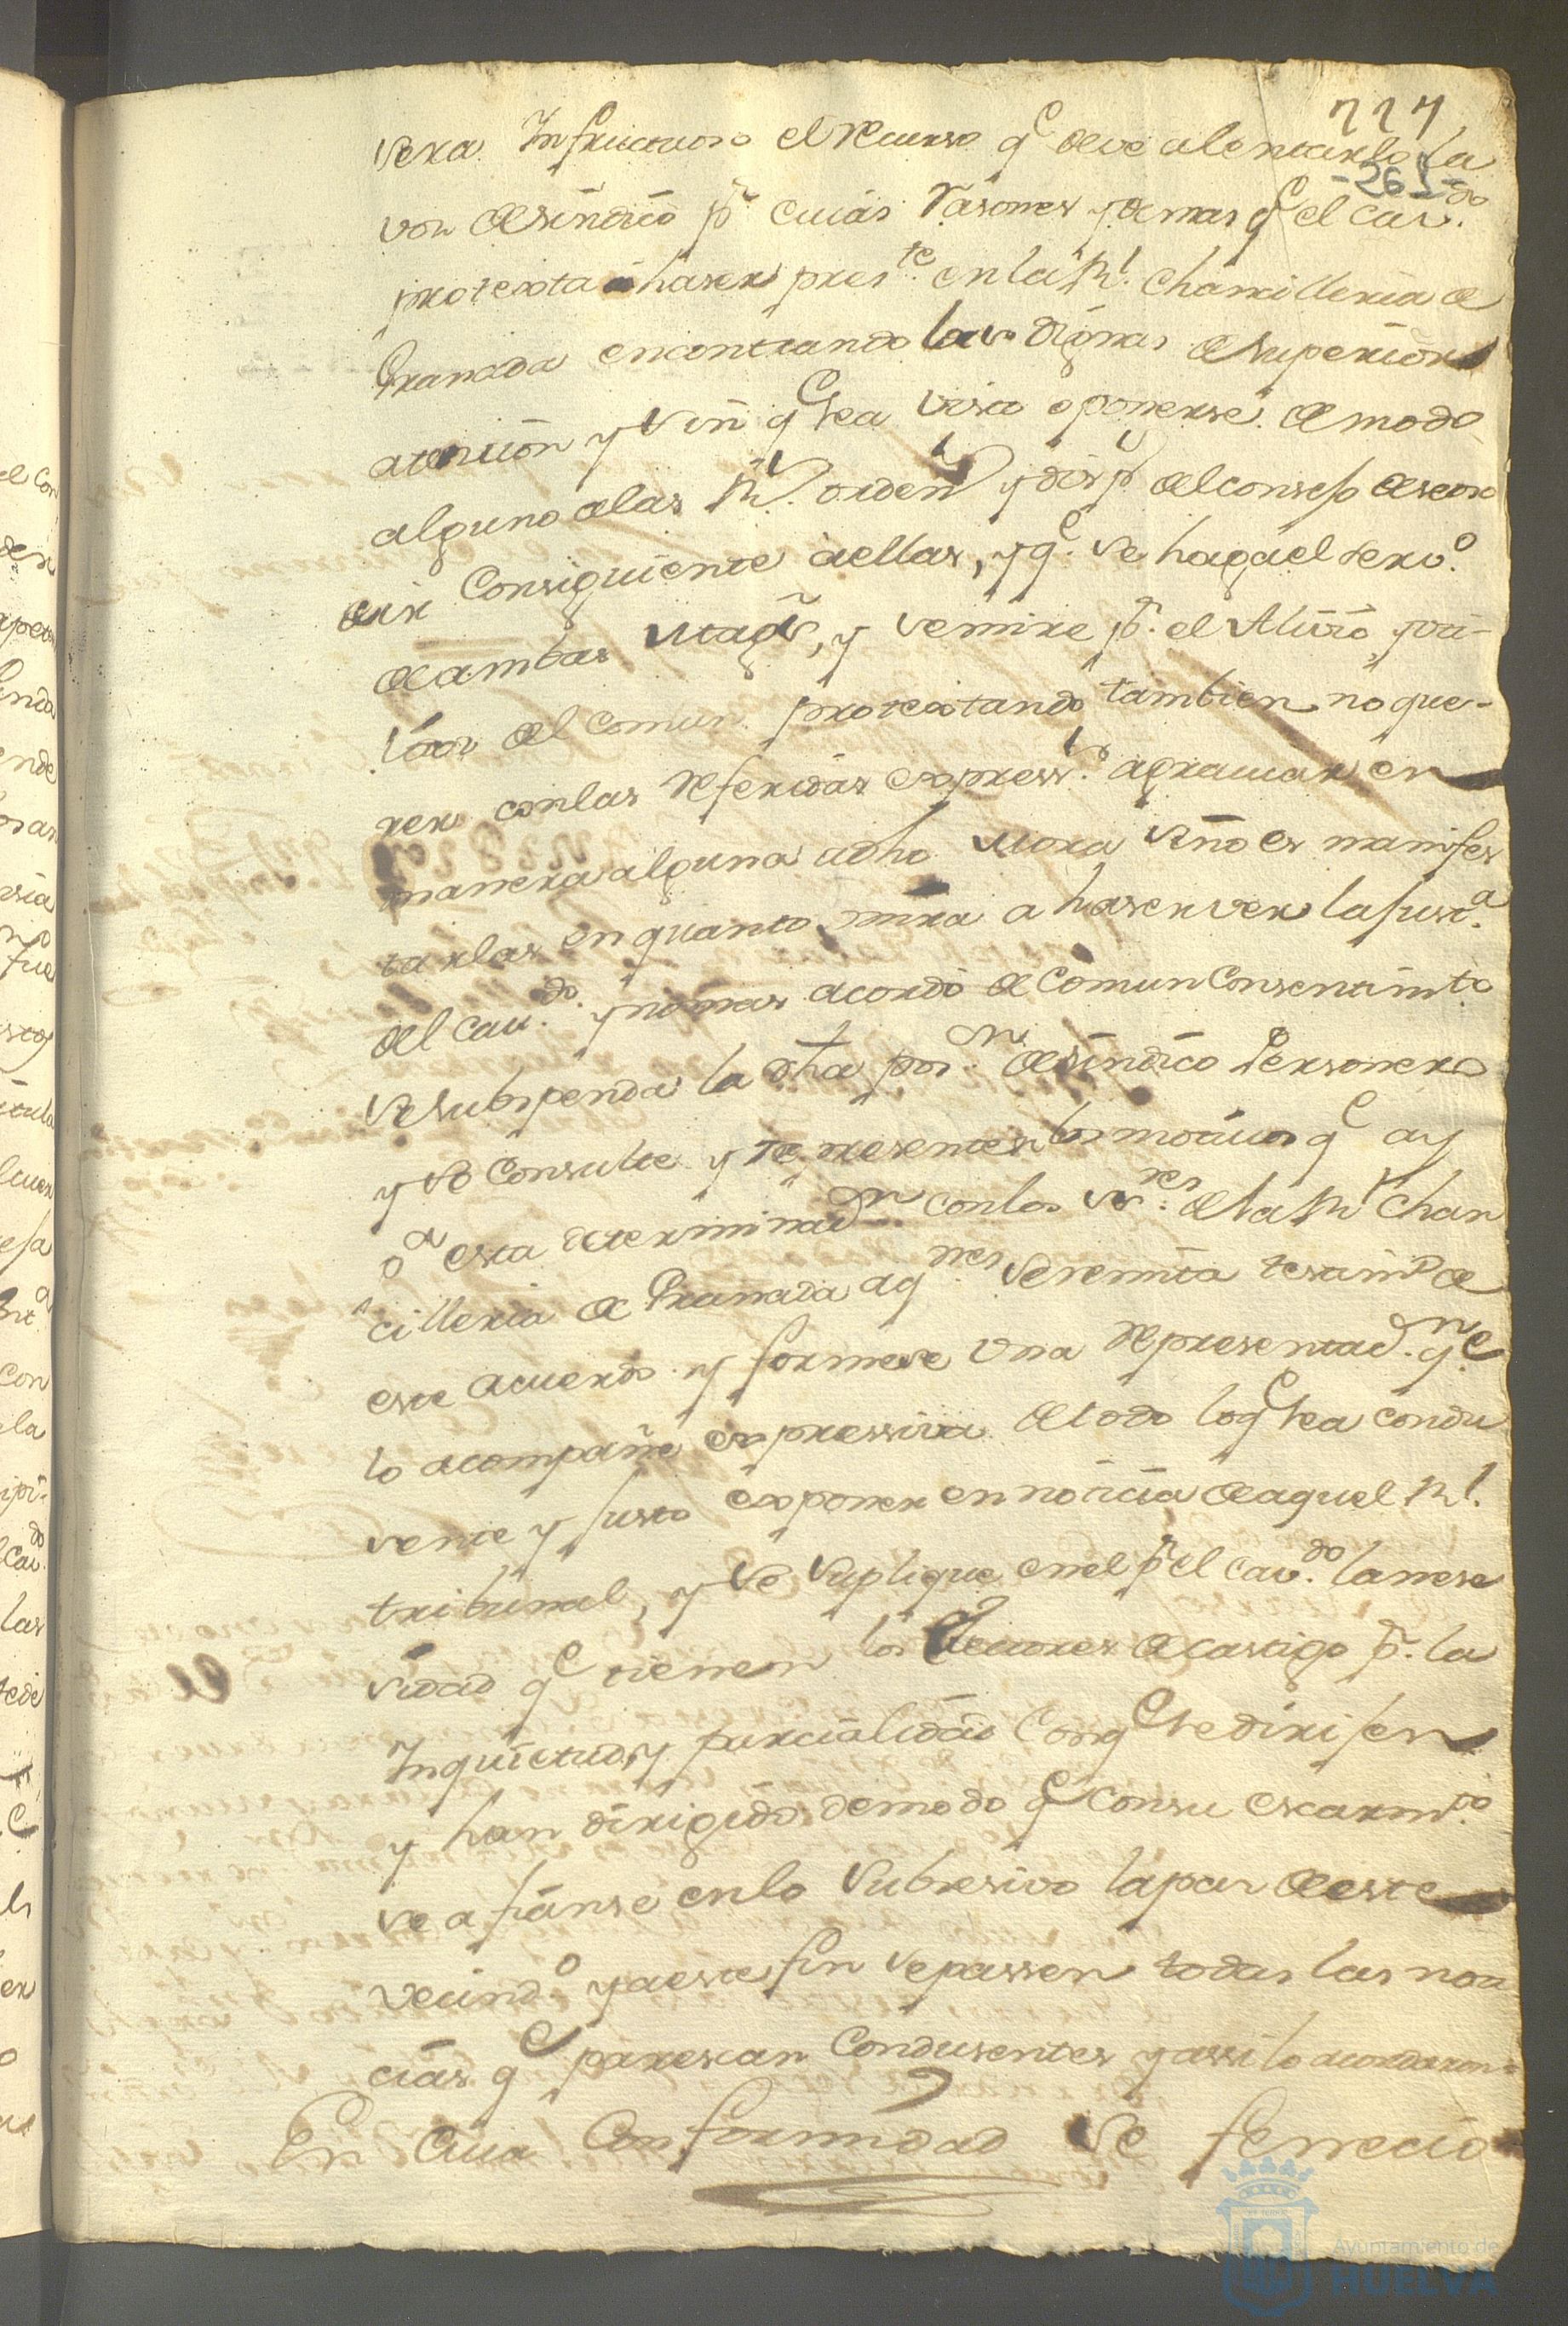 227
265
sera Infructuoso el Recurso q^e deve alentarlo la
vos de sindico p^r cuias rasones y demas q^e el cav^do
protexta haser pres^te en la R^l Chansilleria de
Granada encontrando las dignas de superior
atension y sin q^e sea visto oponerse de modo
alguno a las R^s orden^s y disp^s del consejo de
Consiguiente a ellas, y q^e se haga el serv^o
de ambas Mag^s, y se mire p^r el Alivio y uti-
del comun protextando tambien no que-
rer con las Referidas express^s agraviar en
manera alguna a dho Mora sino es manifes
tarlas en quanto mira a haser ver la just^a
del cav^do y no mas acordo de Comun Consentim^to
se subspenda la dha pos^n de sindico Personero
y se Consulte y represente los motivos q^e ay
p^a esta determinac^n con los S^res de la R^l Chan
cilleria de Granada a q^nes se remita testim^o de
este acuerdo y formese una Representac^n q^e
lo acompañe expressiva de todo lo q^e sea condu
sente y justo exponer en noticia de aquel R^l
tribunal, y se suplique en el p^r el cav^do la nese
sidad q^e tienen los Electores de castigo p^r la
Inquietud y parcialidad con q^e se dirijen
y han dirigido de modo q^e con su escarm^to
se afianse en lo subsesivo la pas de este
vecind^o y a este fin se passen todas las noti
cias q^e parescan Condusentes y assi lo acordaron =
En Cuia Conformidad se fenecio
Ayuntamiento de
HUELVA